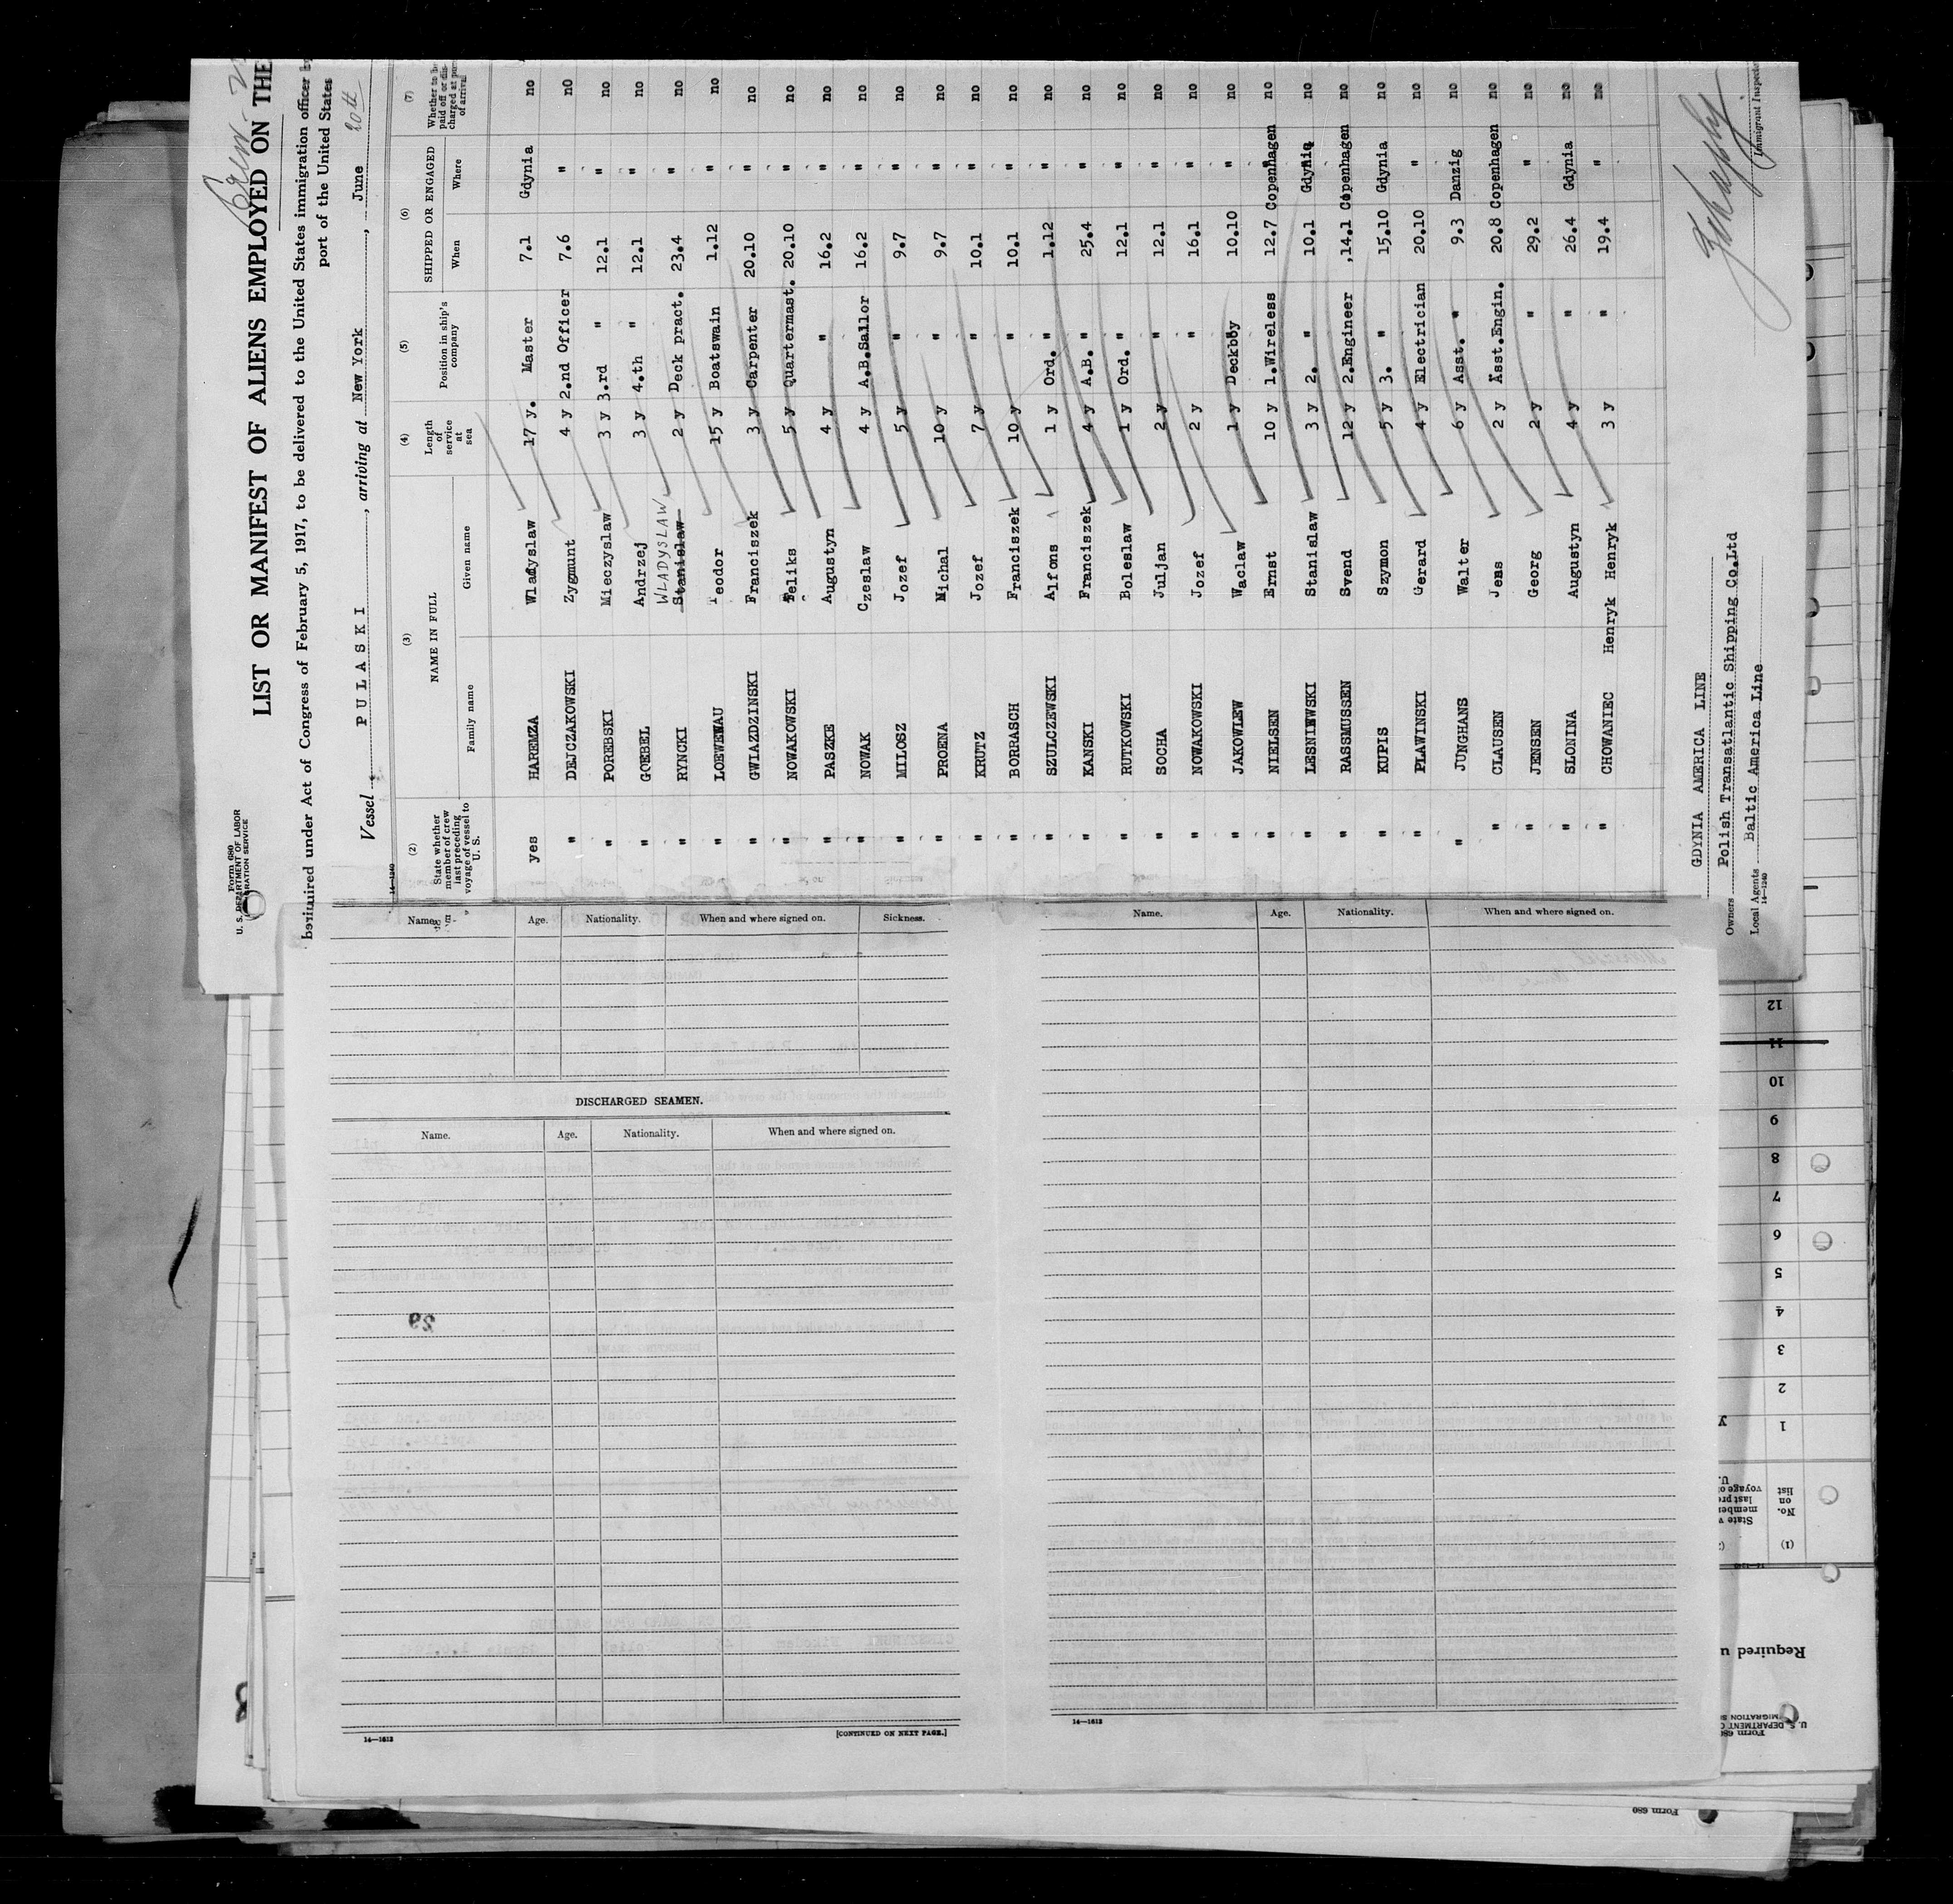 Form 680
U. S. DEPARTMENT OF LABOR
LIST OR MANIFEST OF ALIENS EMPLOYED ON THE
Required under Act of Congress of February 5, 1917, to be delivered to the United States immigration officer
port of the United States
Vessel PULASKI, arriving at New York, June 20th
(2) (3) (4) (5) (6) (7)
State whether member of crew last preceding voyage of vessel to U. S. NAME IN FULL Length of service at sea Position in ship's company SHIPPED OR ENGAGED Whether to be paid off or discharged at port of arrival
Family name Given name When Where
yes HAREMZA Wladyslaw 17 y. Master 7.1 Gdynia no
" DEJCZAKOWSKI Zygmunt 4 y 2.nd Officer 7.6 " no
" POREBSKI Mieczyslaw 3 y 3.rd " 12.1 " no
" GOEBEL Andrzej 3 y 4.th " 12.1 " no
" RYNCKI Stanislaw WLADYSLAW 2 y Deck pract. 23.4 " no
" LOEWENAU Teodor 15 y Boatswain 1.12 " no
" GWIAZDZINSKI Franciszek 3 y Carpenter 20.10 " no
" NOWAKOWSKI Feliks 5 y Quartermast. 20.10 " no
" PASZKE Augustyn 4 y " 16.2 " no
" NOWAK Czeslaw 4 y A.B.Sailor 16.2 " no
" MILOSZ Jozef 5 y " 9.7 " no
" PROENA Michal 10 y " 9.7 " no
" KRUTZ Jozef 7 y " 10.1 " no
" BORRASCH Franciszek 10 y " 10.1 " no
" SZULCZEWSKI Alfons 1 y Ord. " 1.12 " no
" KANSKI Franciszek 4 y A.B. " 25.4 " no
" RUTKOWSKI Boleslaw 1 y Ord. " 12.1 " no
" SOCHA Juljan 2 y " 12.1 " no
" NOWAKOWSKI Jozef 2 y " 16.1 " no
" JAKOWLEW Waclaw 1 y Deckboy 10.10 " no
" NIELSEN Ernst 10 y 1.Wireless 12.7 Copenhagen no
" LESNIEWSKI Stanislaw 3 y 2. " 10.1 Gdynia no
" RASSMUSSEN Svend 12 y 2.Engineer 14.1 Copenhagen no
" KUPIS Szymon 5 y 3. " 15.10 Gdynia no
" PLAWINSKI Gerard 4 y Electrician 20.10 " no
" JUNGHANS Walter 6 y Asst. " 9.3 Danzig no
" CLAUSEN Jens 2 y Asst.Engin. 20.8 Copenhagen no
" JENSEN Georg 2 y " 29.2 " no
" SLONINA Augustyn 4 y " 26.4 Gdynia no
" CHOWANIEC Henryk Henryk 3 y " 19.4 " no
GDYNIA AMERICA LINE
Owners Polish Transatlantic Shipping Co.Ltd
Local Agents Baltic America Line
14—1240
Immigrant Inspector
Name. Age. Nationality. When and where signed on. Sickness.
DISCHARGED SEAMEN.
Name. Age. Nationality. When and where signed on.
29
14—1613
[CONTINUED ON NEXT PAGE.]
Name. Age. Nationality. When and where signed on.
14—1613
12
11
10
9
8
7
6
5
4
3
2
1
No. on list
(1)
Required u
Form 680